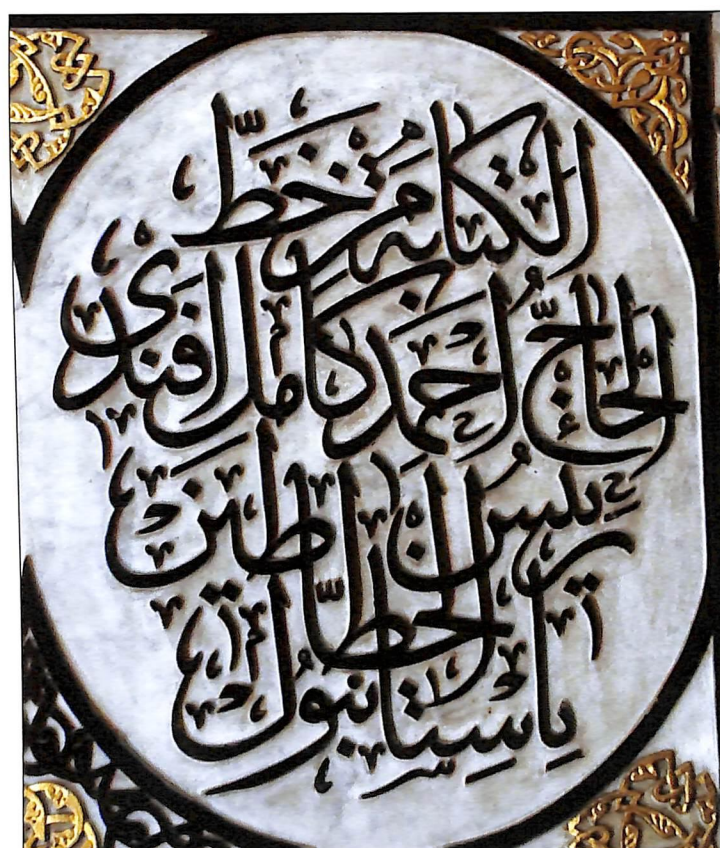 الكتابة من خط
الحاج أحمد كامل افندى
رئيس الخطاطين
باستانبول